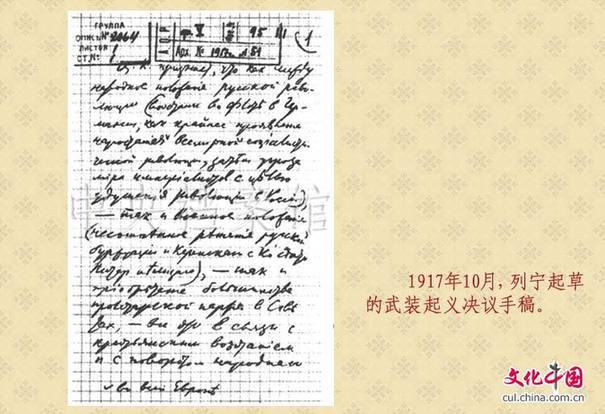 ГРУППА
ОПИСЬ № 2064
ЛИСТОВ
СТ. № 1
ф. V 95 III
Арх. № 1917г. 181
1
Ц.К. признает, что как между
народное положение русской рево
люции (восстание во флоте в Гер
мании, как крайнее проявление
нарастания всемирной социалисти
ческой революции, затем угроза
мира империалистов с целью
удушения революции в России),
— так и военное положение
(несомненное решение русской
буржуазии и Керенского с Ко сдать
Питер немцам), — так и
приобретение большинства
пролетарской партией в Сове
тах, — все это в связи с
крестьянским восстанием
и с поворотом народного
во всей Европе
1917年10月,列宁起草
的武装起义决议手稿。
文化中国
cul.china.com.cn